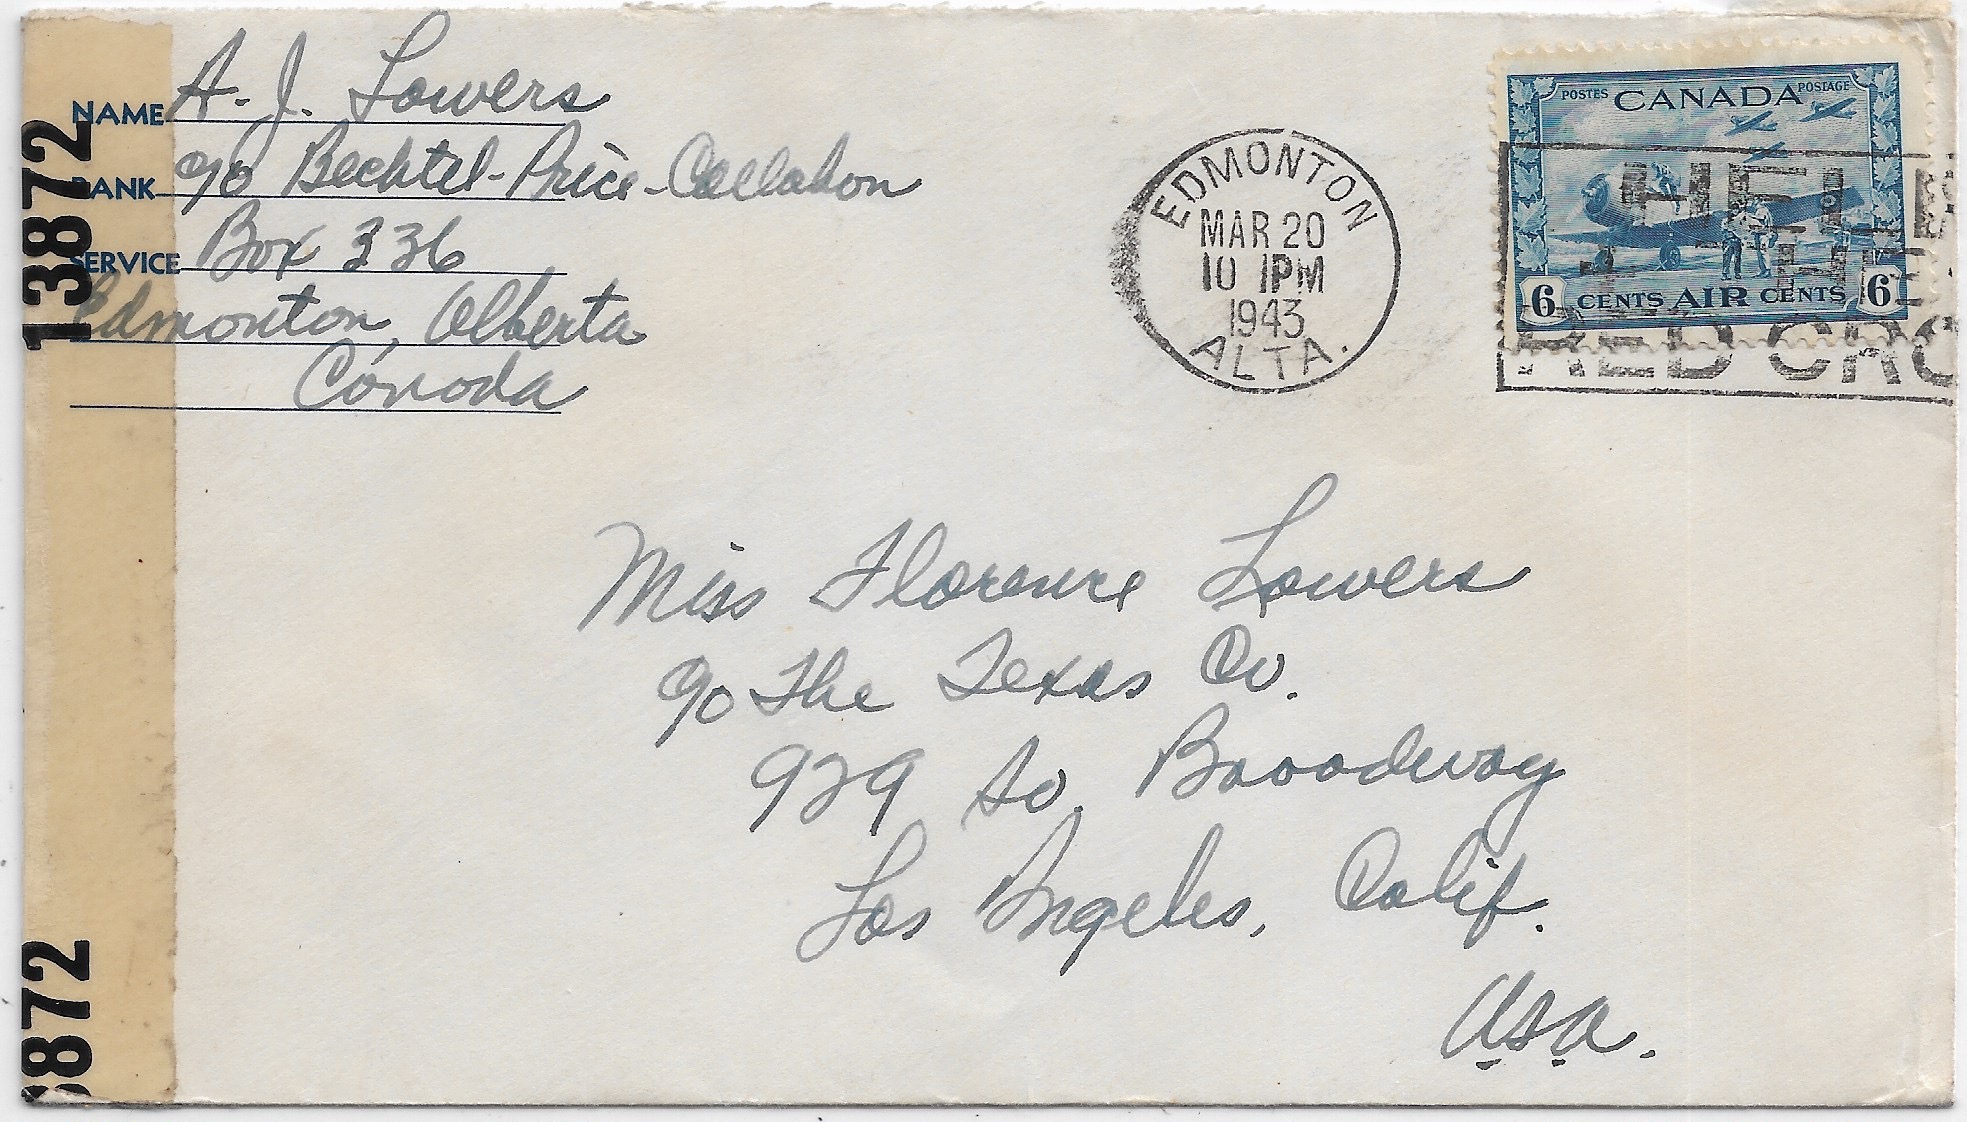 NAME A. J. Lowers
RANK c/o Bechtel-Price-Callahan
SERVICE Box 336
Edmonton, Alberta
Canada
13872
872
EDMONTON
MAR 20
10 PM
1943
ALTA.
POSTES CANADA POSTAGE
6 CENTS AIR CENTS 6
HEL
RED CRO
Miss Florence Lowers
c/o The Texas Co.
929 So. Broadway
Los Angeles, Calif.
U.S.A.